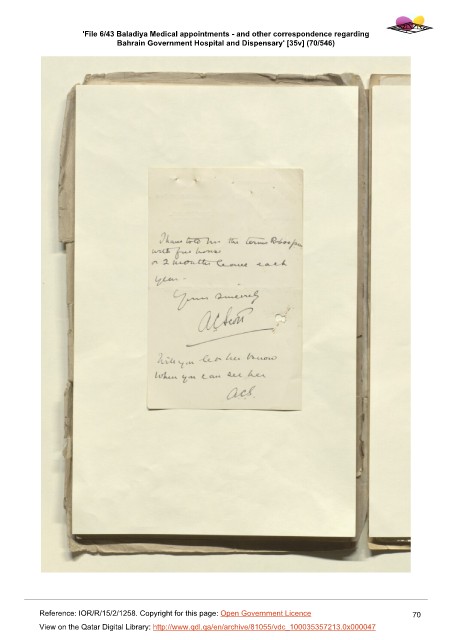 'File 6/43 Baladiya Medical appointments - and other correspondence regarding
Bahrain Government Hospital and Dispensary' [35v] (70/546)
I have told her the terms
with free house
or 2 months leave each
year.
Yours sincerely
A C Scott
Will you let her know
When you can see her
ACS.
Reference: IOR/R/15/2/1258. Copyright for this page: Open Government Licence
View on the Qatar Digital Library: http://www.qdl.qa/en/archive/81055/vdc_100035357213.0x000047
70